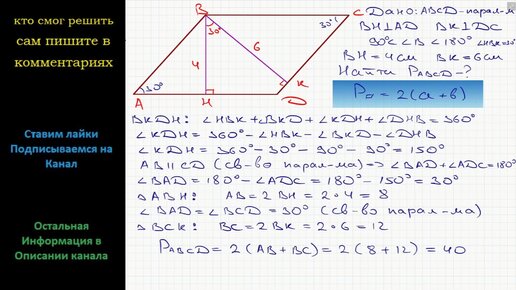 кто смог решить
сам пишите в
комментариях
Ставим лайки
Подписываемся на
Канал
Остальная
Информация в
Описании канала
B
C
30°
30°
4
6
K
30°
A
H
D
Дано: ABCD-парал-м
BH⊥AD BK⊥DC
90°<∠B<180° ∠HBK=30°
BH=4см BK=6см
Найти P_ABCD-?
P▱ = 2(a+b)
BKDH: ∠HBK+∠BKD+∠KDH+∠DHB=360°
∠KDH=360°-∠HBK-∠BKD-∠DHB
∠KDH=360°-30°-90°-90°=150°
AB∥CD (св-во парал-ма)=>∠BAD+∠ADC=180°
∠BAD=180°-∠ADC=180°-150°=30°
△ABH: AB=2BH=2·4=8
∠BAD=∠BCD=30° (св-во парал-ма)
△BCK: BC=2BK=2·6=12
P_ABCD=2(AB+BC)=2(8+12)=40